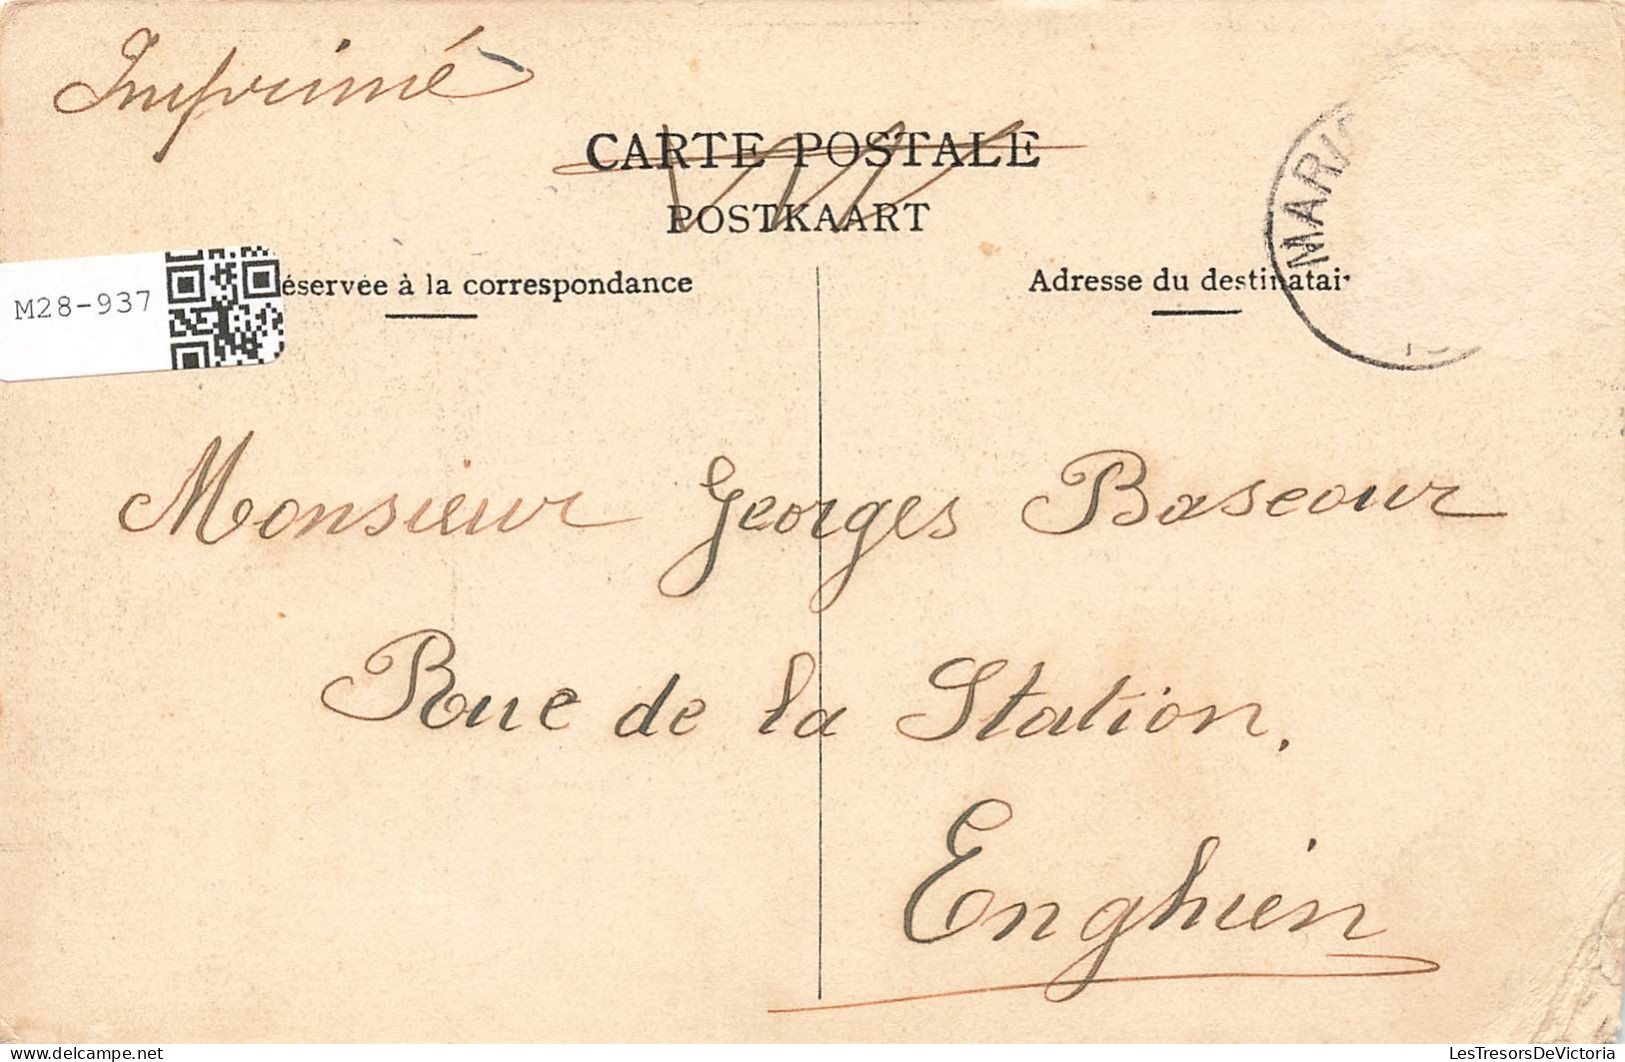 Imprimé
CARTE POSTALE
POSTKAART
éservée à la correspondance
Adresse du destinatai
M28-937
MARI
Monsieur Georges Bascour
Rue de la Station.
Enghien
LesTresorsDeVictoria